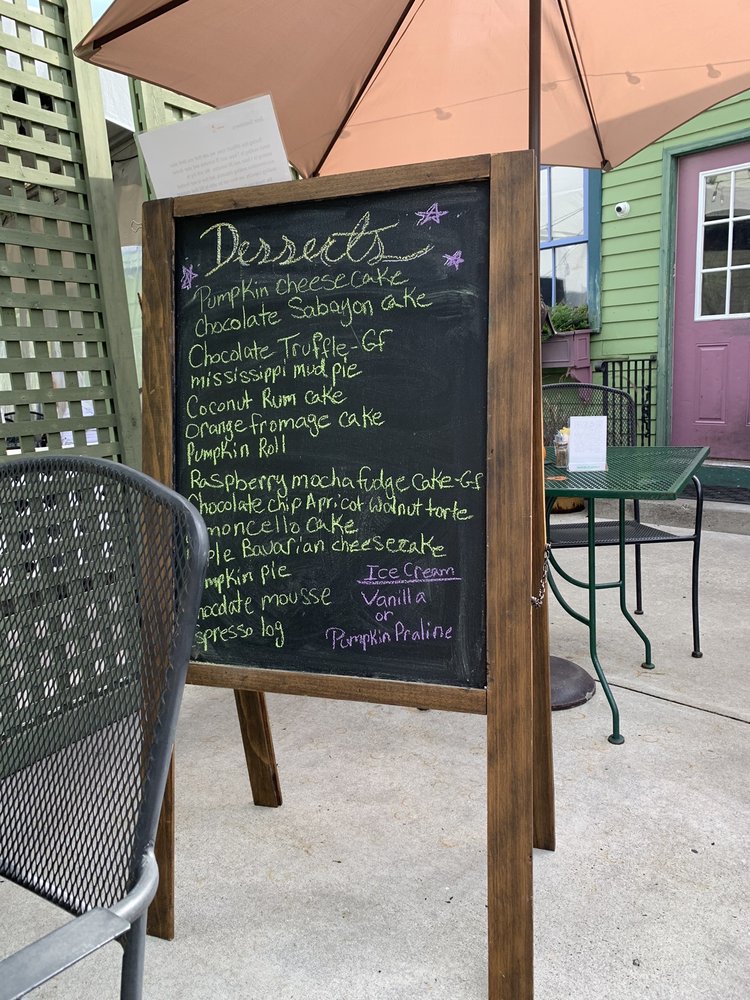 Desserts
Pumpkin cheesecake
chocolate Sabayon cake
Chocolate Truffle-Gf
mississippi mud pie
Coconut Rum cake
Orange fromage cake
Pumpkin Roll
Raspberry mocha fudge cake-Gf
Chocolate chip Apricot walnut torte
cake
Bavarian cheesecake
pie
mousse
log
Ice Cream
Vanilla
or
Pumpkin Praline